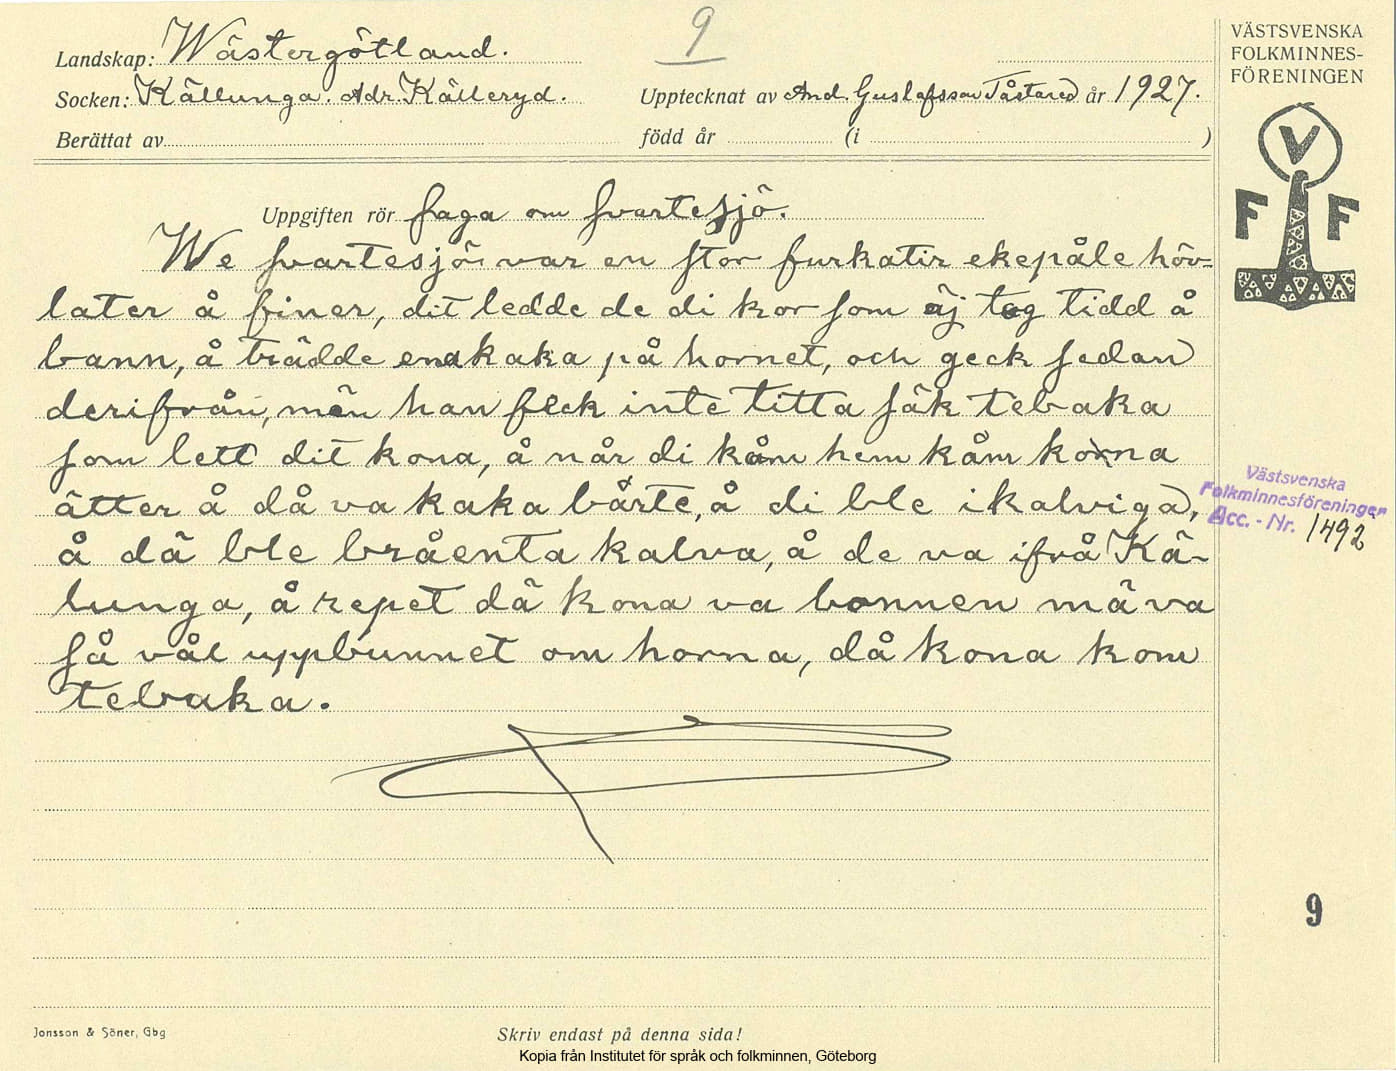 9
Landskap: Wästergötland.
Socken: Källunga. Adr. Källeryd.
Upptecknat av And. Gustafsson Tåstared år 1927.
Berättat av
född år (i )
Uppgiften rör saga om svartesjö.
We svartesjön var en stor furkatir ekepåle höv-
later å finer, dit ledde de di kor som äj tog tidd å
bann, å trädde en kaka på hornet, och geck sedan
derifrån, män han feck inte titta säk tebaka
som lett dit kona, å når di kåm hem kåm kona
ätter å då va kaka bårte, å di ble i kalviga,
å dä ble bråenta kalva, å de va ifrå Kä-
lunga, å repet dä kona va bonnen mä va
så väl uppbunnet om horna, då kona kom
tebaka.
VÄSTSVENSKA
FOLKMINNES-
FÖRENINGEN
V
F F
Västsvenska
Folkminnesföreningen
Acc. - Nr. 1492
9
Jonsson & Söner, Gbg
Skriv endast på denna sida!
Kopia från Institutet för språk och folkminnen, Göteborg